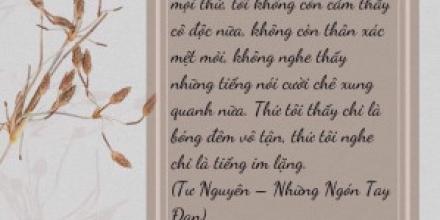 mọi thứ, tôi không còn cảm thấy
cô độc nữa, không còn thân xác
mệt mỏi, không nghe thấy
những tiếng nói cười chê xung
quanh nữa. Thứ tôi thấy chỉ là
bóng đêm vô tận, thứ tôi nghe
chỉ là tiếng im lặng.
(Tư Nguyên – Những Ngón Tay
Đan)